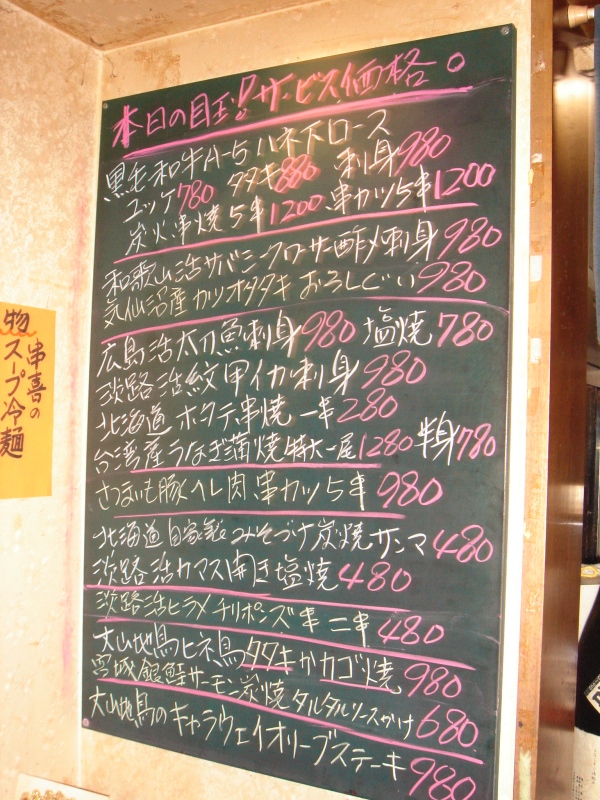 本日の目玉!サービス価格。
黒毛和牛A-5ハネ下ロース
ユッケ780 タタキ880 刺身980
炭火串焼5串1200 串カツ5串1200
和歌山活サバ シークワーサー酢〆刺身980
気仙沼産カツオタタキ おろしぐい980
広島活太刀魚刺身980 塩焼780
淡路活紋甲イカ刺身980
北海道ホタテ串焼一串280
台湾産うなぎ蒲焼特大一尾1280 半身780
さつまいも豚ヘレ肉串カツ5串980
北海道自家製みそづけ炭焼サンマ480
淡路活カマス開き塩焼480
淡路活ヒラメチリポンズ串二串480
大山地鳥ヒネ鳥タタキかカゴ焼980
宮城銀鮭サーモン炭焼タルタルソースがけ680
大山地鳥のキャラウェイオリーブステーキ980
串喜の
物スープ冷麺